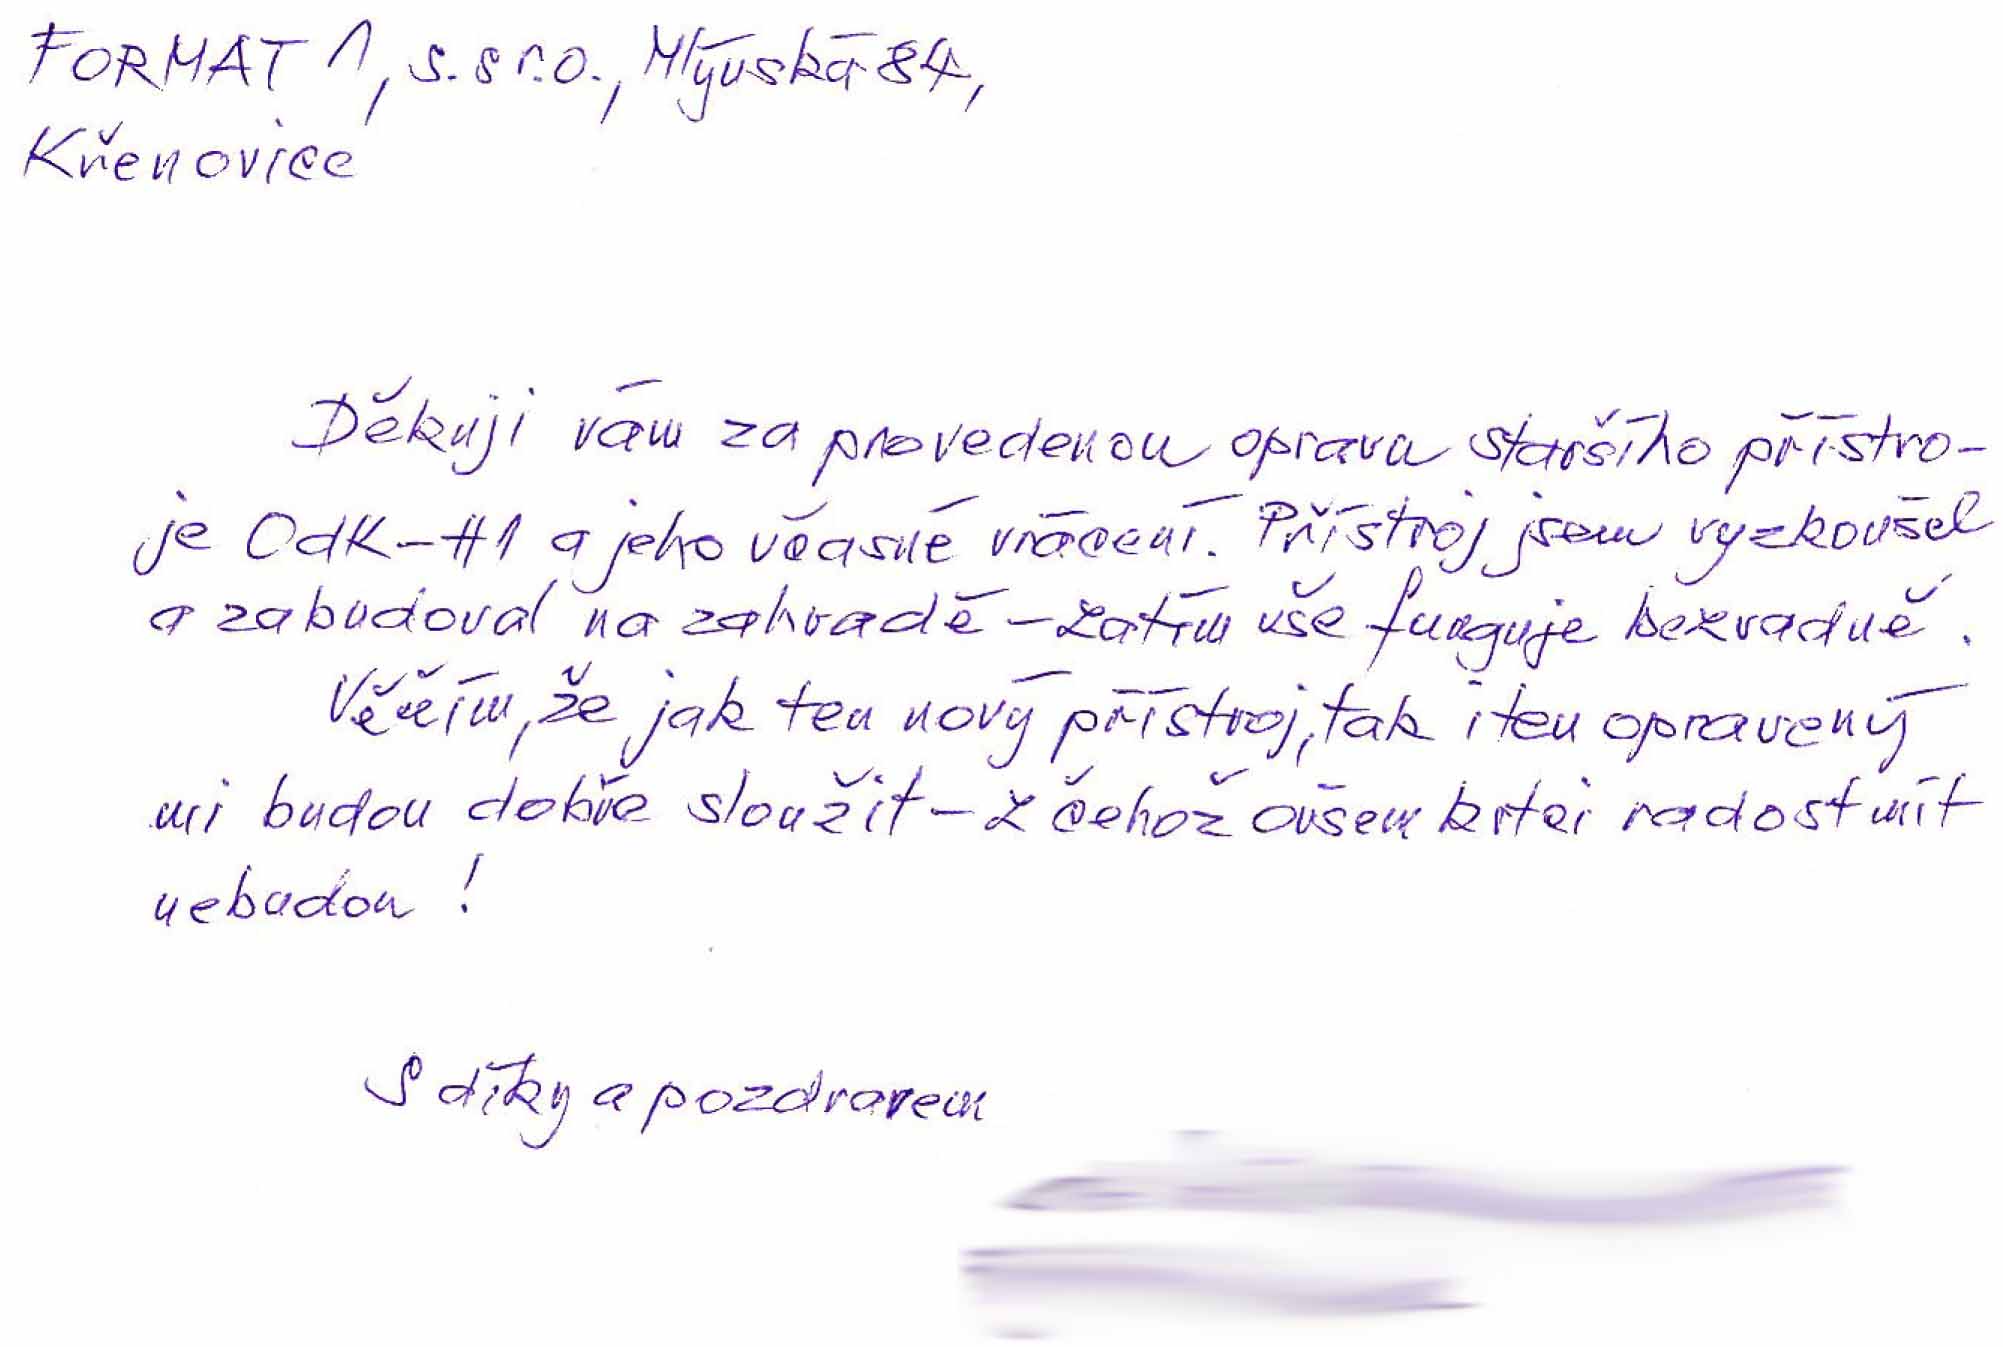 FORMAT 1, s.s r.o., Mlýnská 84,
Křenovice
Děkuji vám za provedenou opravu staršího přístro-
je OdK-#1 a jeho včasné vrácení. Přístroj jsem vyzkoušel
a zabudoval na zahradě - zatím vše funguje bezvadně.
Věřím, že jak ten nový přístroj, tak i ten opravený
mi budou dobře sloužit - z čehož ovšem krtci radost mít
nebudou!
S díky a pozdravem